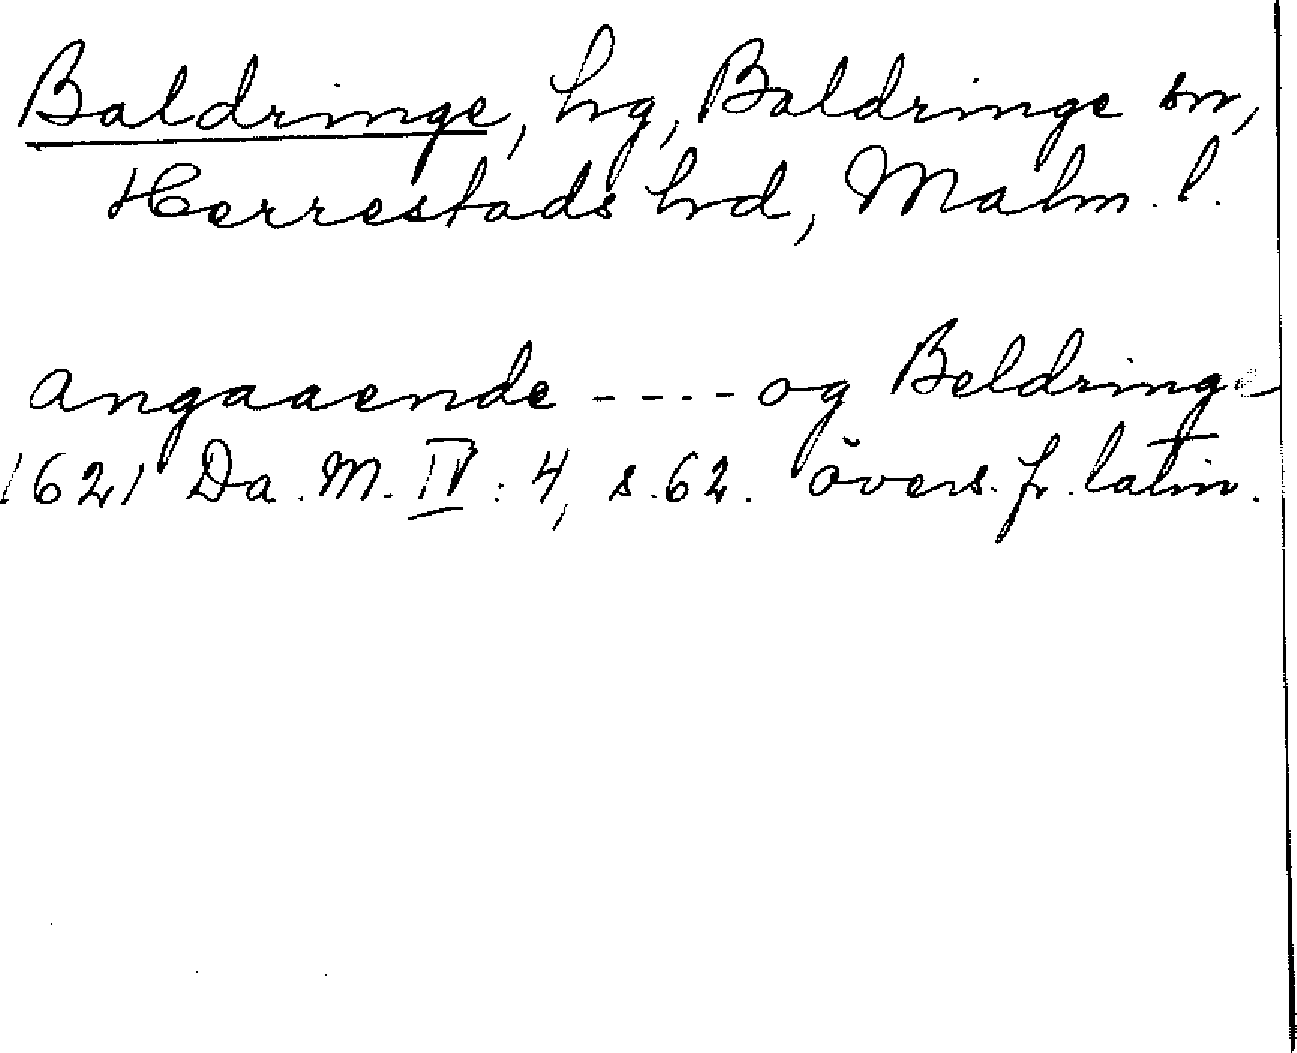 Baldringe, hg, Baldringe sn,
Herrestads hd, Malm. l.
angaaende ---- og Beldringe
1621 Da. M. IV: 4, s. 62. övers. fr. latin.